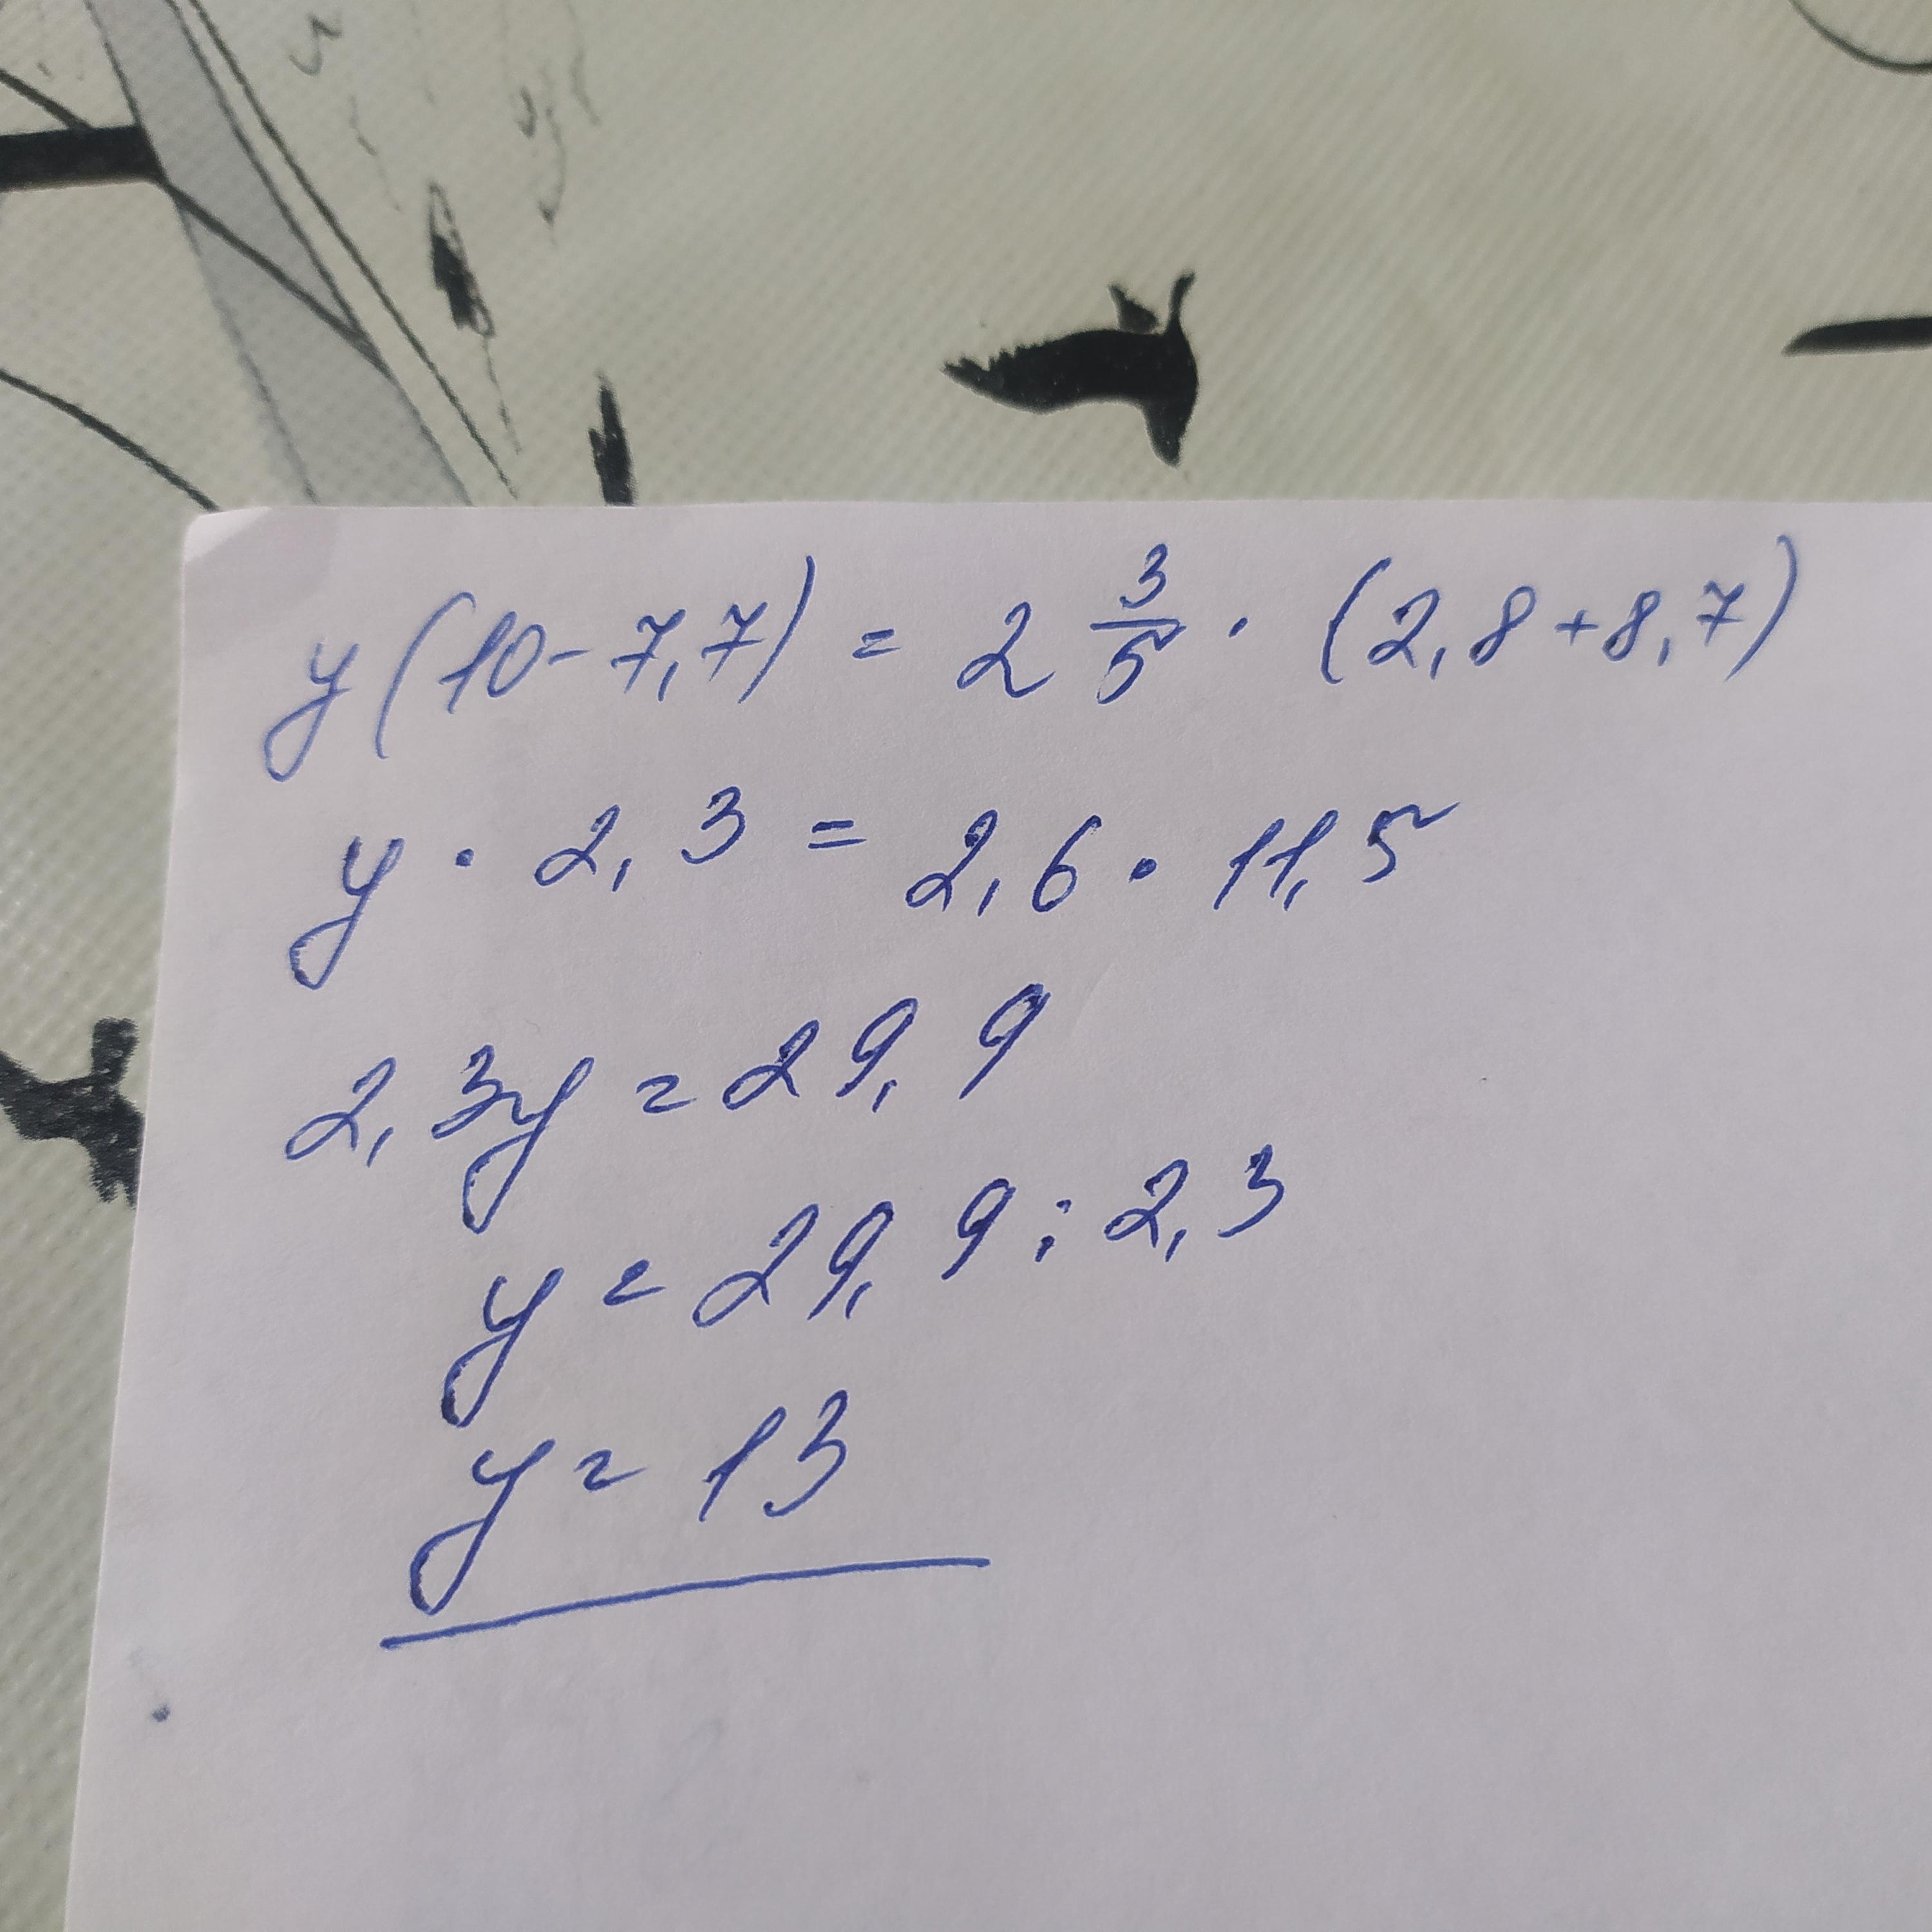 y(10-7,7) = 2 3/5 · (2,8+8,7)
y · 2,3 = 2,6 · 11,5
2,3y = 29,9
y = 29,9 : 2,3
y = 13